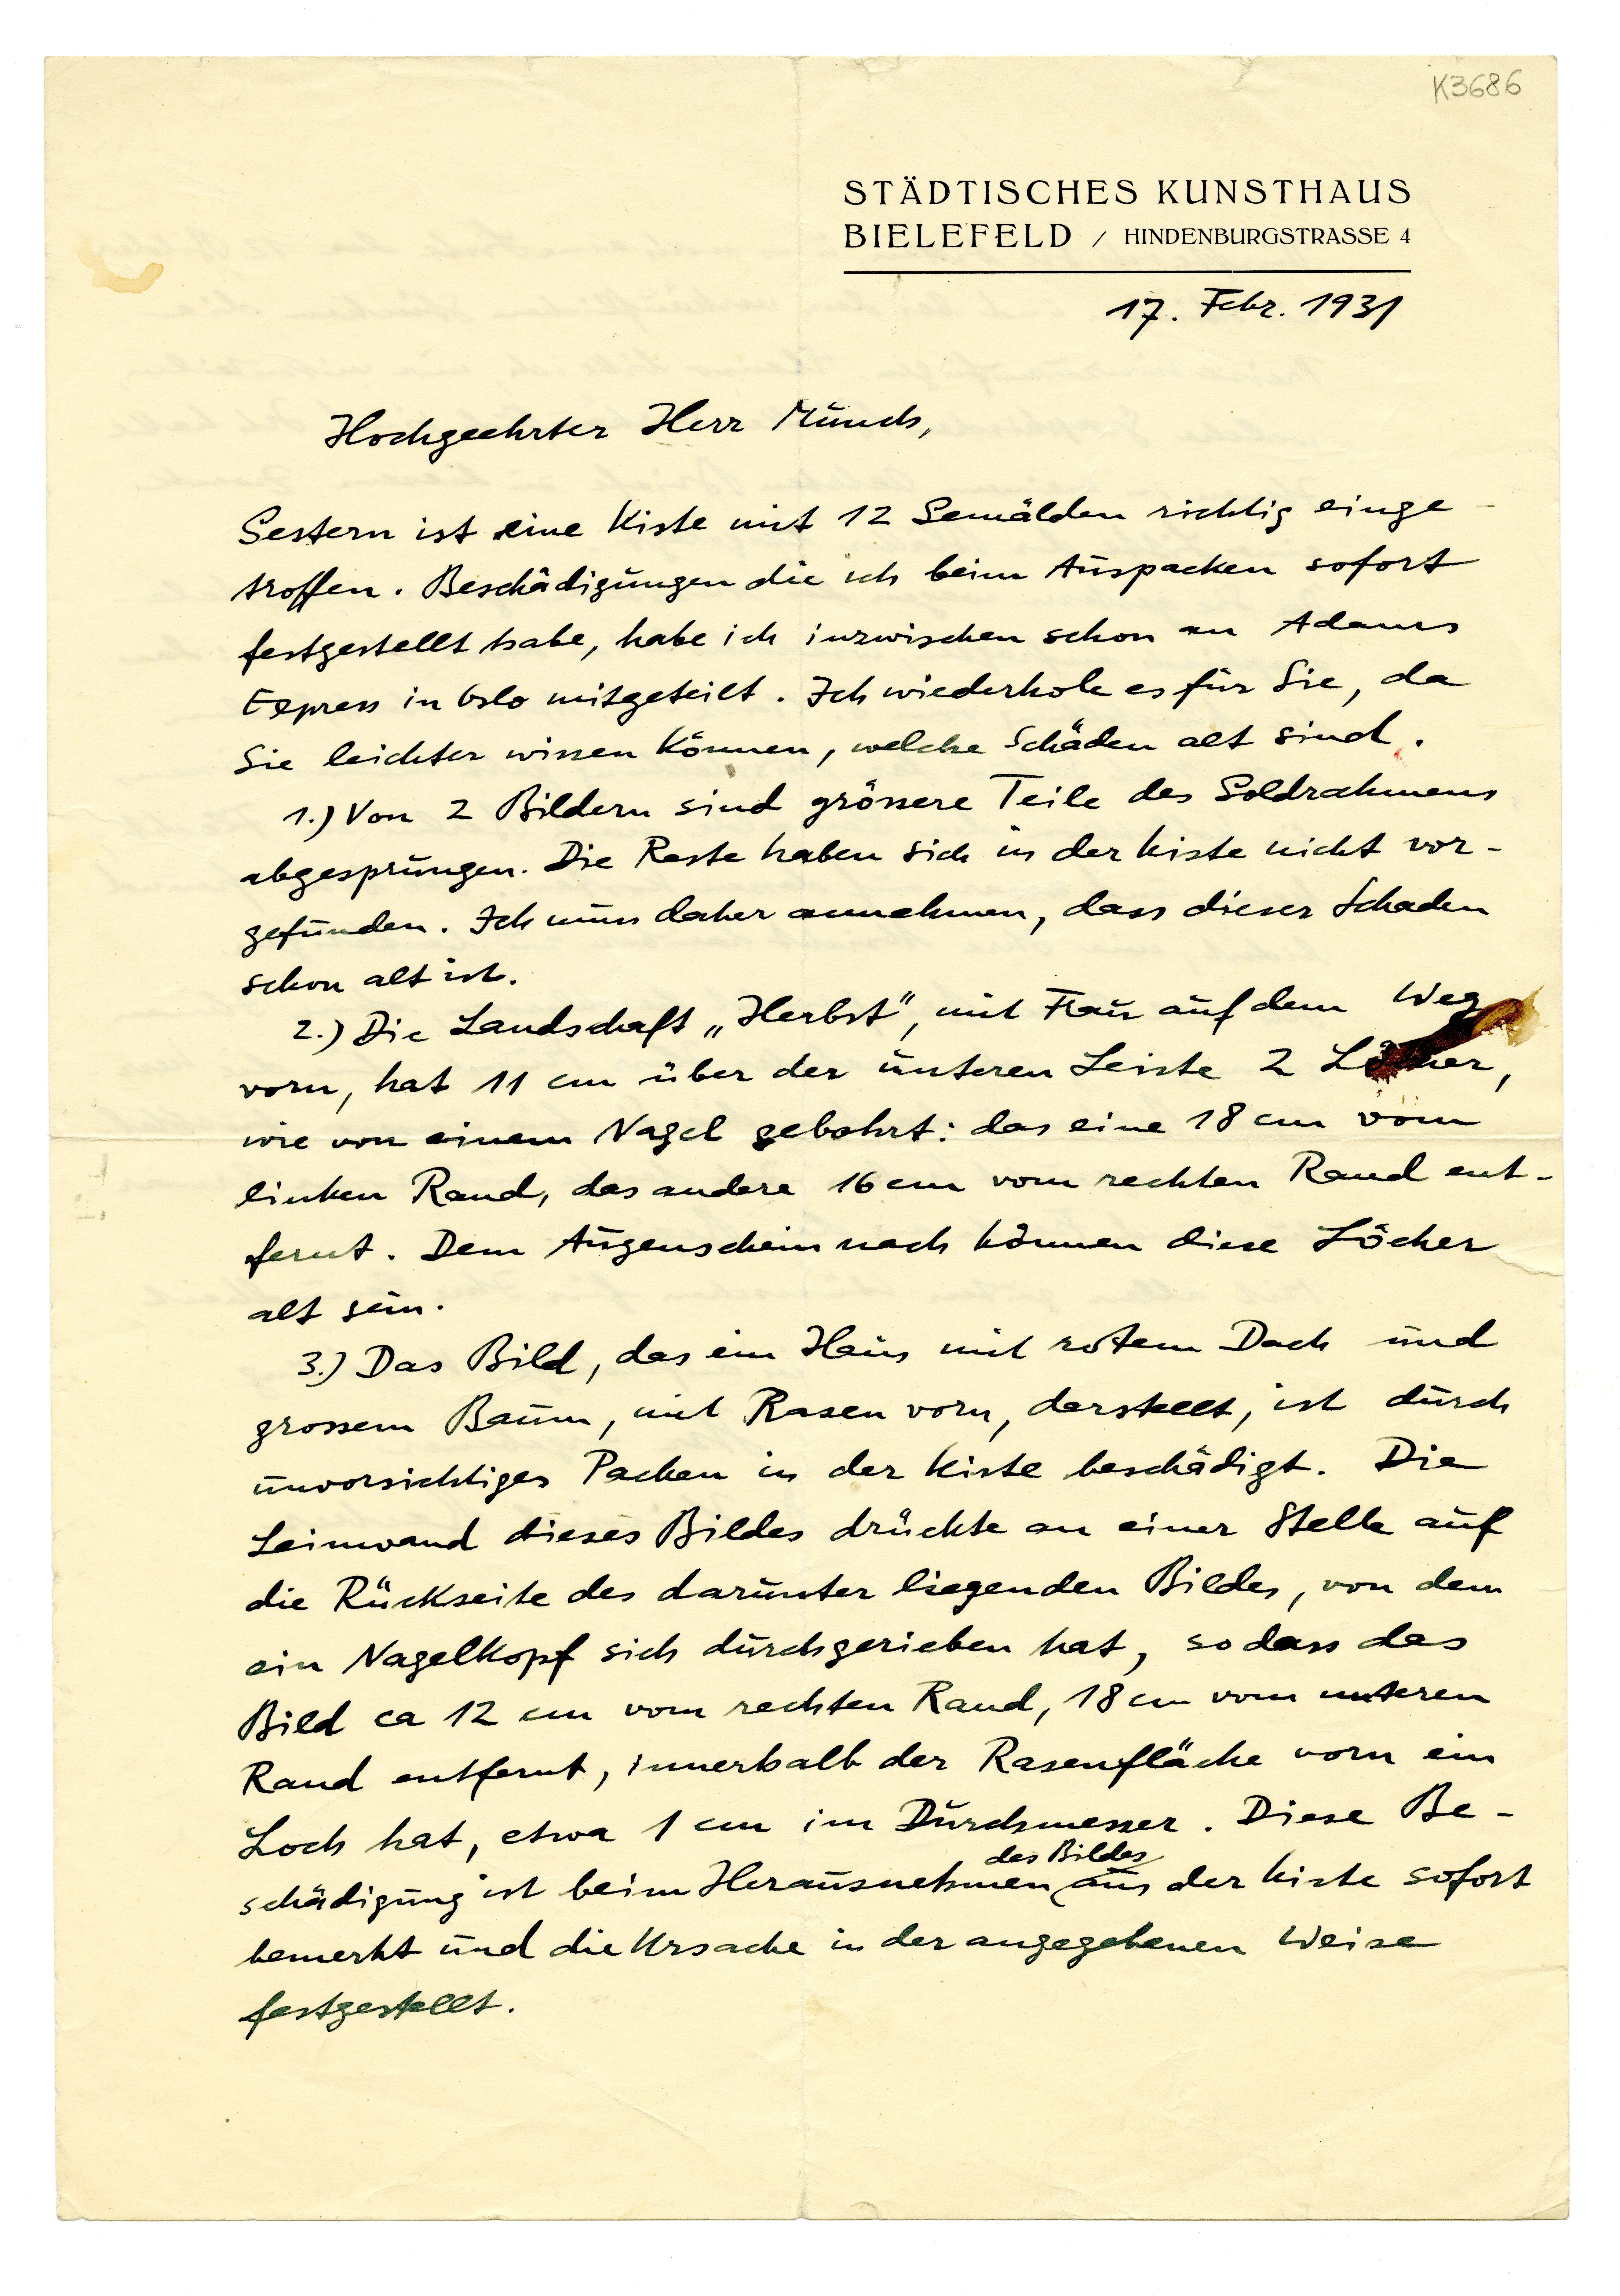 K3686
STÄDTISCHES KUNSTHAUS
BIELEFELD / HINDENBURGSTRASSE 4
17. Febr. 1931
Hochgeehrter Herr Munch,
Gestern ist eine Kiste mit 12 Gemälden richtig einge-
troffen. Beschädigungen die ich beim Auspacken sofort
festgestellt habe, habe ich inzwischen schon an Adams
Express in Oslo mitgeteilt. Ich wiederhole es für Sie, da
Sie leichter wissen können, welche Schäden alt sind.
1.) Von 2 Bildern sind grössere Teile des Goldrahmens
abgesprungen. Die Reste haben sich in der Kiste nicht vor-
gefunden. Ich muss daher annehmen, dass dieser Schaden
schon alt ist.
2.) Die Landschaft „Herbst“, mit Frau auf dem Weg
vorn, hat 11 cm über der unteren Leiste 2 Löcher,
wie von einem Nagel gebohrt: das eine 18 cm vom
linken Rand, das andere 16 cm vom rechten Rand ent-
fernt. Dem Augenschein nach können diese Löcher
alt sein.
3.) Das Bild, das ein Haus mit rotem Dach und
grossem Baum, mit Rasen vorn, darstellt, ist durch
unvorsichtiges Packen in der Kiste beschädigt. Die
Leinwand dieses Bildes drückte an einer Stelle auf
die Rückseite des darunter liegenden Bildes, von dem
ein Nagelkopf sich durchgerieben hat, sodass das
Bild ca 12 cm vom rechten Rand, 18 cm vom unteren
Rand entfernt, innerhalb der Rasenfläche vorn ein
Loch hat, etwa 1 cm im Durchmesser. Diese Be-
des Bildes
schädigung ist beim Herausnehmen aus der Kiste sofort
bemerkt und die Ursache in der angegebenen Weise
festgestellt.